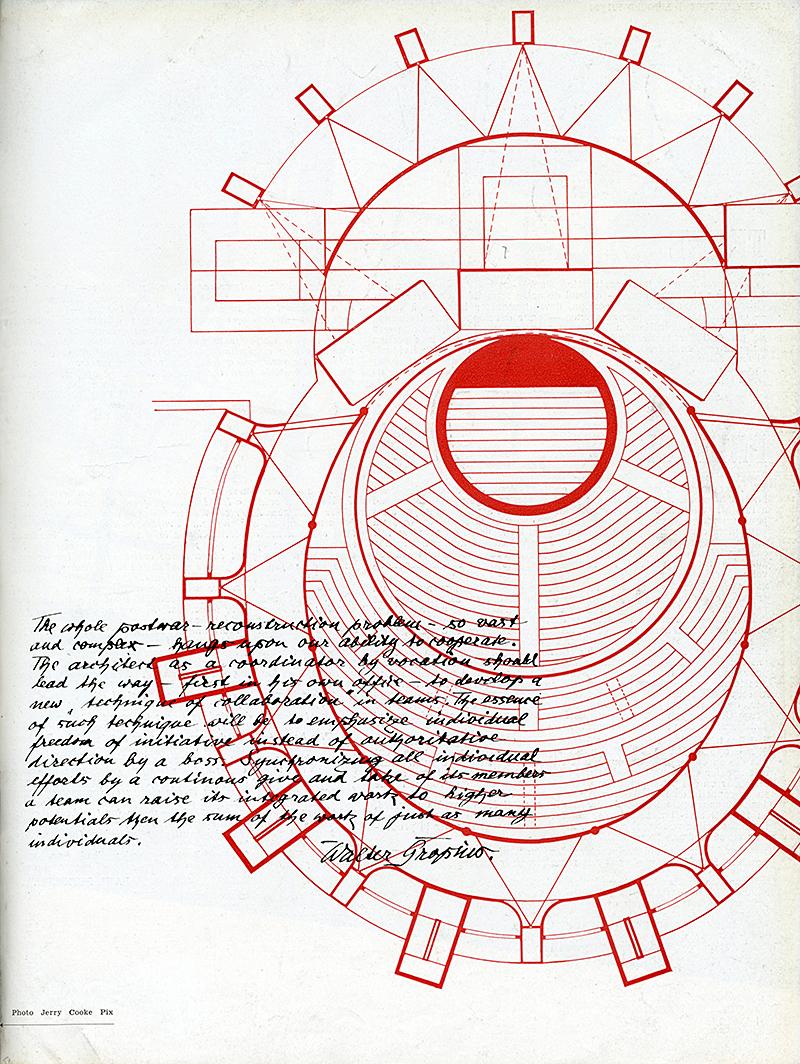 The whole postwar – reconstruction problem – so vast
and complex – hangs upon our ability to cooperate.
The architect as a coordinator by vocation should
lead the way – first in his own office – to develop a
new „technique of collaboration" in teams. The essence
of such technique will be to emphasize individual
freedom of initiative instead of authoritative
direction by a boss. Synchronizing all individual
efforts by a continous give and take of its members
a team can raise its integrated work to higher
potentials then the sum of the work of just as many
individuals.
Walter Gropius.
Photo Jerry Cooke Pix